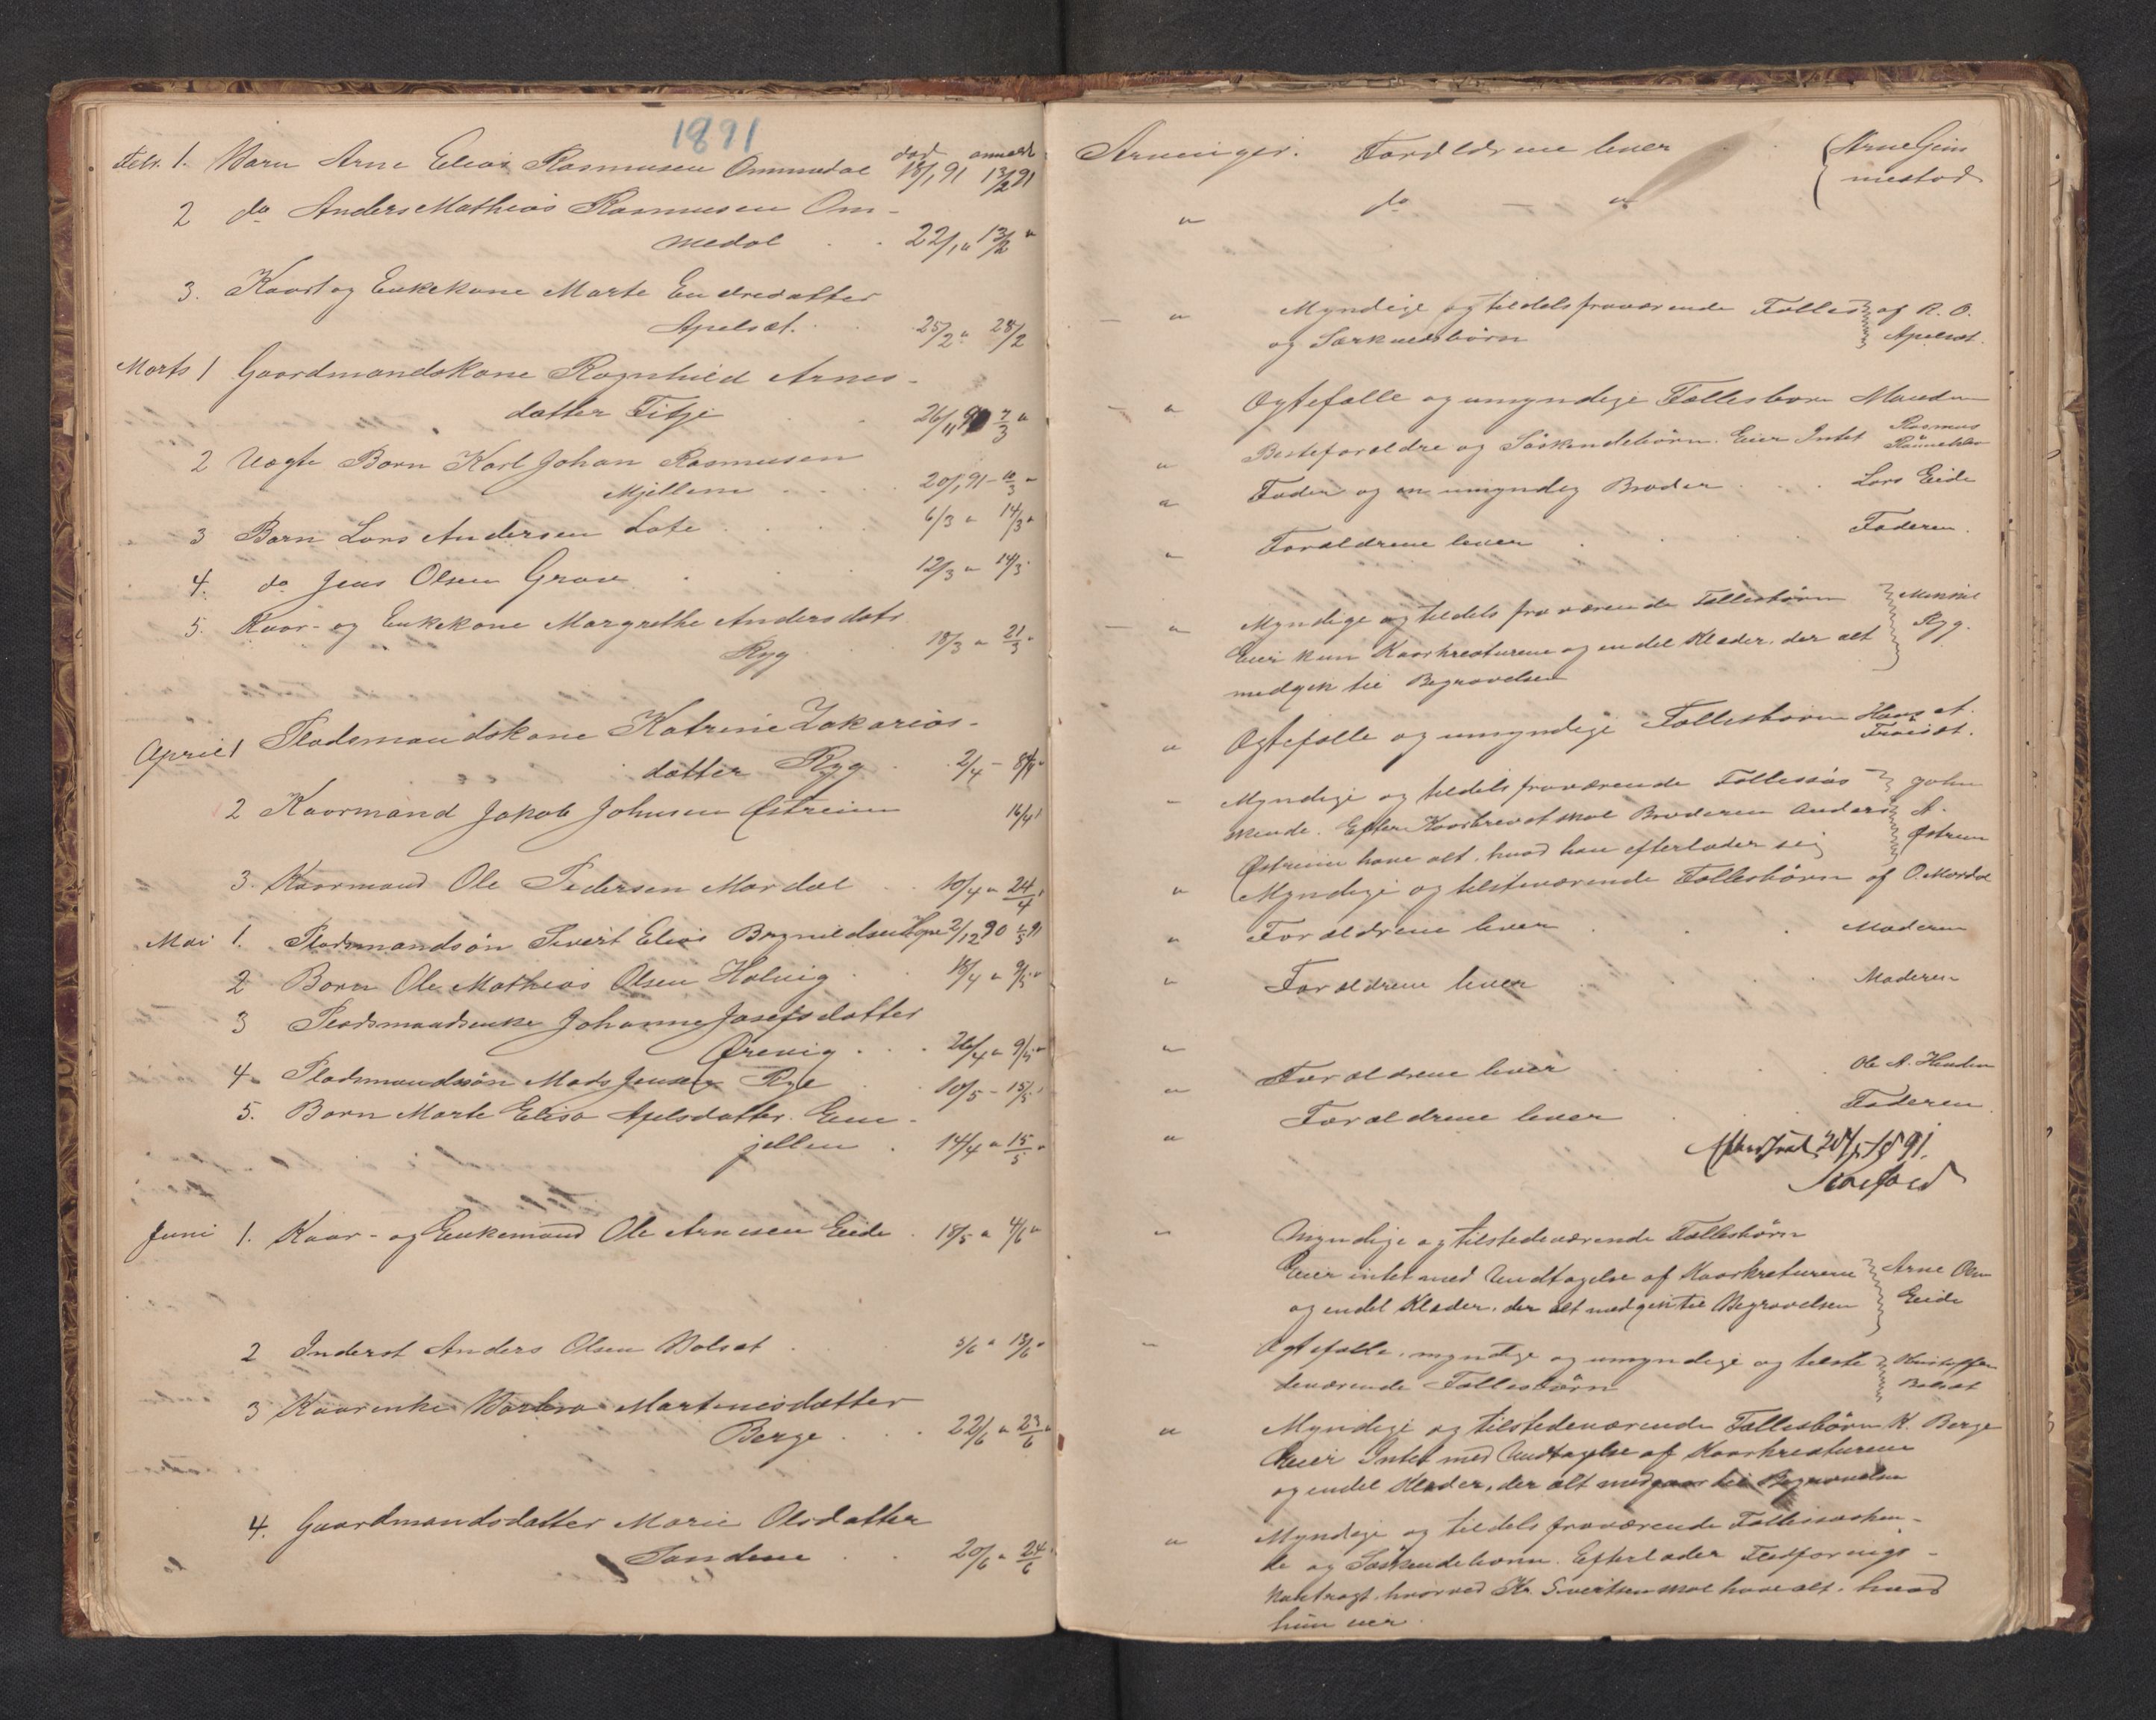 1891
død anmeldt
Febr. 1. Barn Arne Elias Rasmusen Ommedal 18/1 91 13/2 91
2 do Anders Mathias Rasmusen Om-
medal . . 22/1 " 13/2 "
3. Kaar og Enkekone Marte Endredatter
Apelsæt. . 25/2 " 28/2
Marts 1 Gaardmandskone Ragnhild Arnes-
datter Fitje . . 26/11 90 7/3 "
2 Uægte Barn Karl Johan Rasmusen
Mjellem . . . 20/1 91 - 10/3 "
3 Barn Lars Andersen Lote . . . 6/3 " 14/3 "
4. do Jens Olsen Grov . . . 12/3 " 14/3 "
5. Kaar- og Enkekone Margrethe Andersdatr
Ryg . . 18/3 " 21/3 "
April 1 Pladsmandskone Katrine Zakarias-
datter Ryg . . 2/4 - 8/4 "
2 Kaarmand Jakob Johnsen Østreim 16/4 "
3. Kaarmand Ole Pedersen Mardal . . 10/4 " 24/4 "
Mai 1. Pladsmandsön Sivert Elias Brynildsen Hope 2/12 90 /5 91
2 Barn Ole Mathias Olsen Holvig . . 18/4 " 9/5 "
3 Pladsmandsenke Johanne Josefsdatter
Ørevig . . . 26/4 " 9/5 "
4. Pladsmandssön Mads Jensen Ryg . . 10/5 - 15/5 "
5. Barn Marte Elisa Apelsdatter. Em-
jellen . 14/4 " 15/5 "
Juni 1. Kaar- og Enkemand Ole Arnesen Eide . 18/5 " 4/6 "
2 Inderst Anders Olsen Bolsæt . . 5/6 " 13/6 "
3 Kaarenke Barbro Martinusdatter
Berge . . . 22/6 " 23/6 "
4. Gaardmandsdatter Marie Olsdatter
Sandene . . 20/6 " 24/6 "
Arvinger. Forældrene lever . . { Arne Gim
mestad
" do - "
- " Myndige og tildels fraværende Fælles } af R. O.
og Særkuldsbörn } Apelsæt.
- " Ægtefælle og umyndige Fællesbörn Manden
" Besteforældre og Söskendebörn. Eier Intet Rasmus
" Fader og en umyndig Broder . . . Lars Eide
" Forældrene lever . . . . Faderen.
- " Myndige og tildels fraværende Fællesbörn } Mikkel
Eier kun Kaarkreaturene og endel Klæder, der alt } Ryg.
medgik til Begravelsen
" Ægtefælle og umyndige Fællesbörn Hans A.
" Myndige og tildels fraværende Fællessös } John
kende. Efter Kaarbrevet skal Broderen Anders } A.
Østreim have alt, hvad han efterlader sig } Østreim
" Myndige og tilstedværende Fællesbörn af O. Mardal
" Forældrene lever . . . Moderen
" Forældrene lever . . . Moderen
"
" Forældrene lever . . . Ole A.
" Forældrene lever . . . Faderen
1891.
" Myndige og tilstedeværende Fællesbörn
Eier intet med Undtagelse af Kaarkreturene } Arne Olsen
og endel Klæder, der alt medgik til Begravelsen } Eide
" Ægtefælle, myndige og umyndige og tilste } Kristoffer
deværende Fællesbörn } Bolsæt
" Myndige og tilstedeværende Fællesbörn K. Berge
Eier Intet med Undtagelse af Kaarkreaturene
og endel Klæder, der alt medgaar til Begravelsen
" Myndige og tildels fraværende Fællessösken-
de og Söskendebörn. Efterlader Fledførings-
kontragt, hvorved Kr. Sivertsen skal have alt, hvad
hun eier.